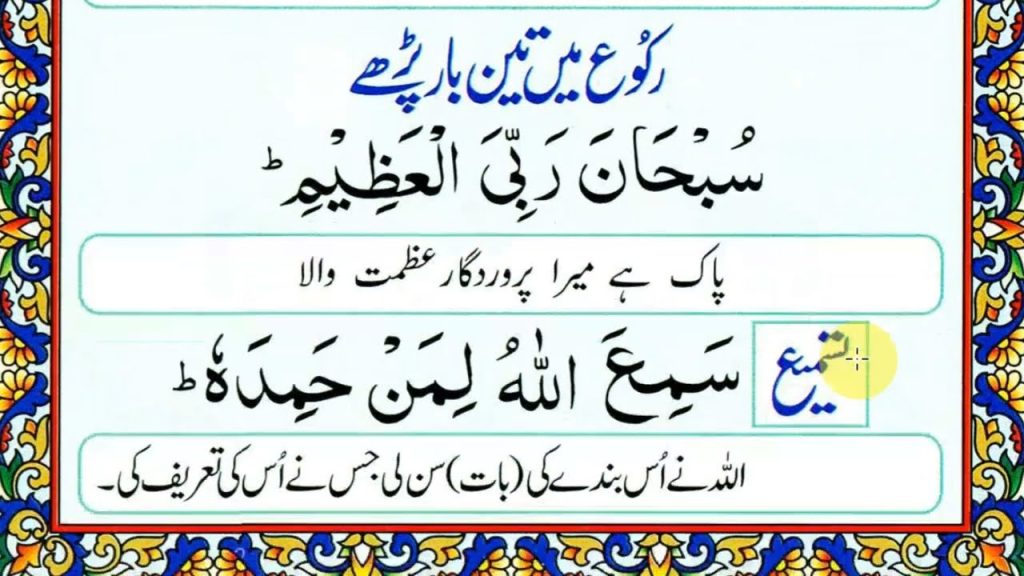 رکُوع میں تین بار پڑھے
سُبْحَانَ رَبِّیَ الْعَظِیْمِ ؕ
پاک ہے میرا پروردگار عظمت والا
تسمیع
سَمِعَ اللّٰہُ لِمَنْ حَمِدَہٗ ؕ
اللہ نے اُس بندے کی (بات) سن لی جس نے اُس کی تعریف کی۔